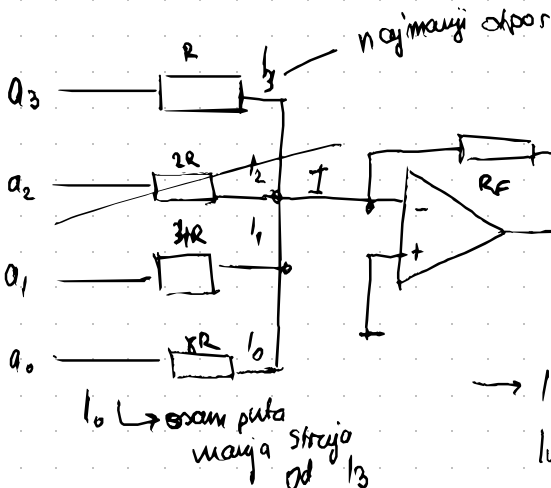 najmanji otpor
R
I3
a3
2R
I2
a2
I
RF
-
+
I1
4R
a1
8R
I0
a0
I0 ↳ osam puta
manja struja
od I3
→ I